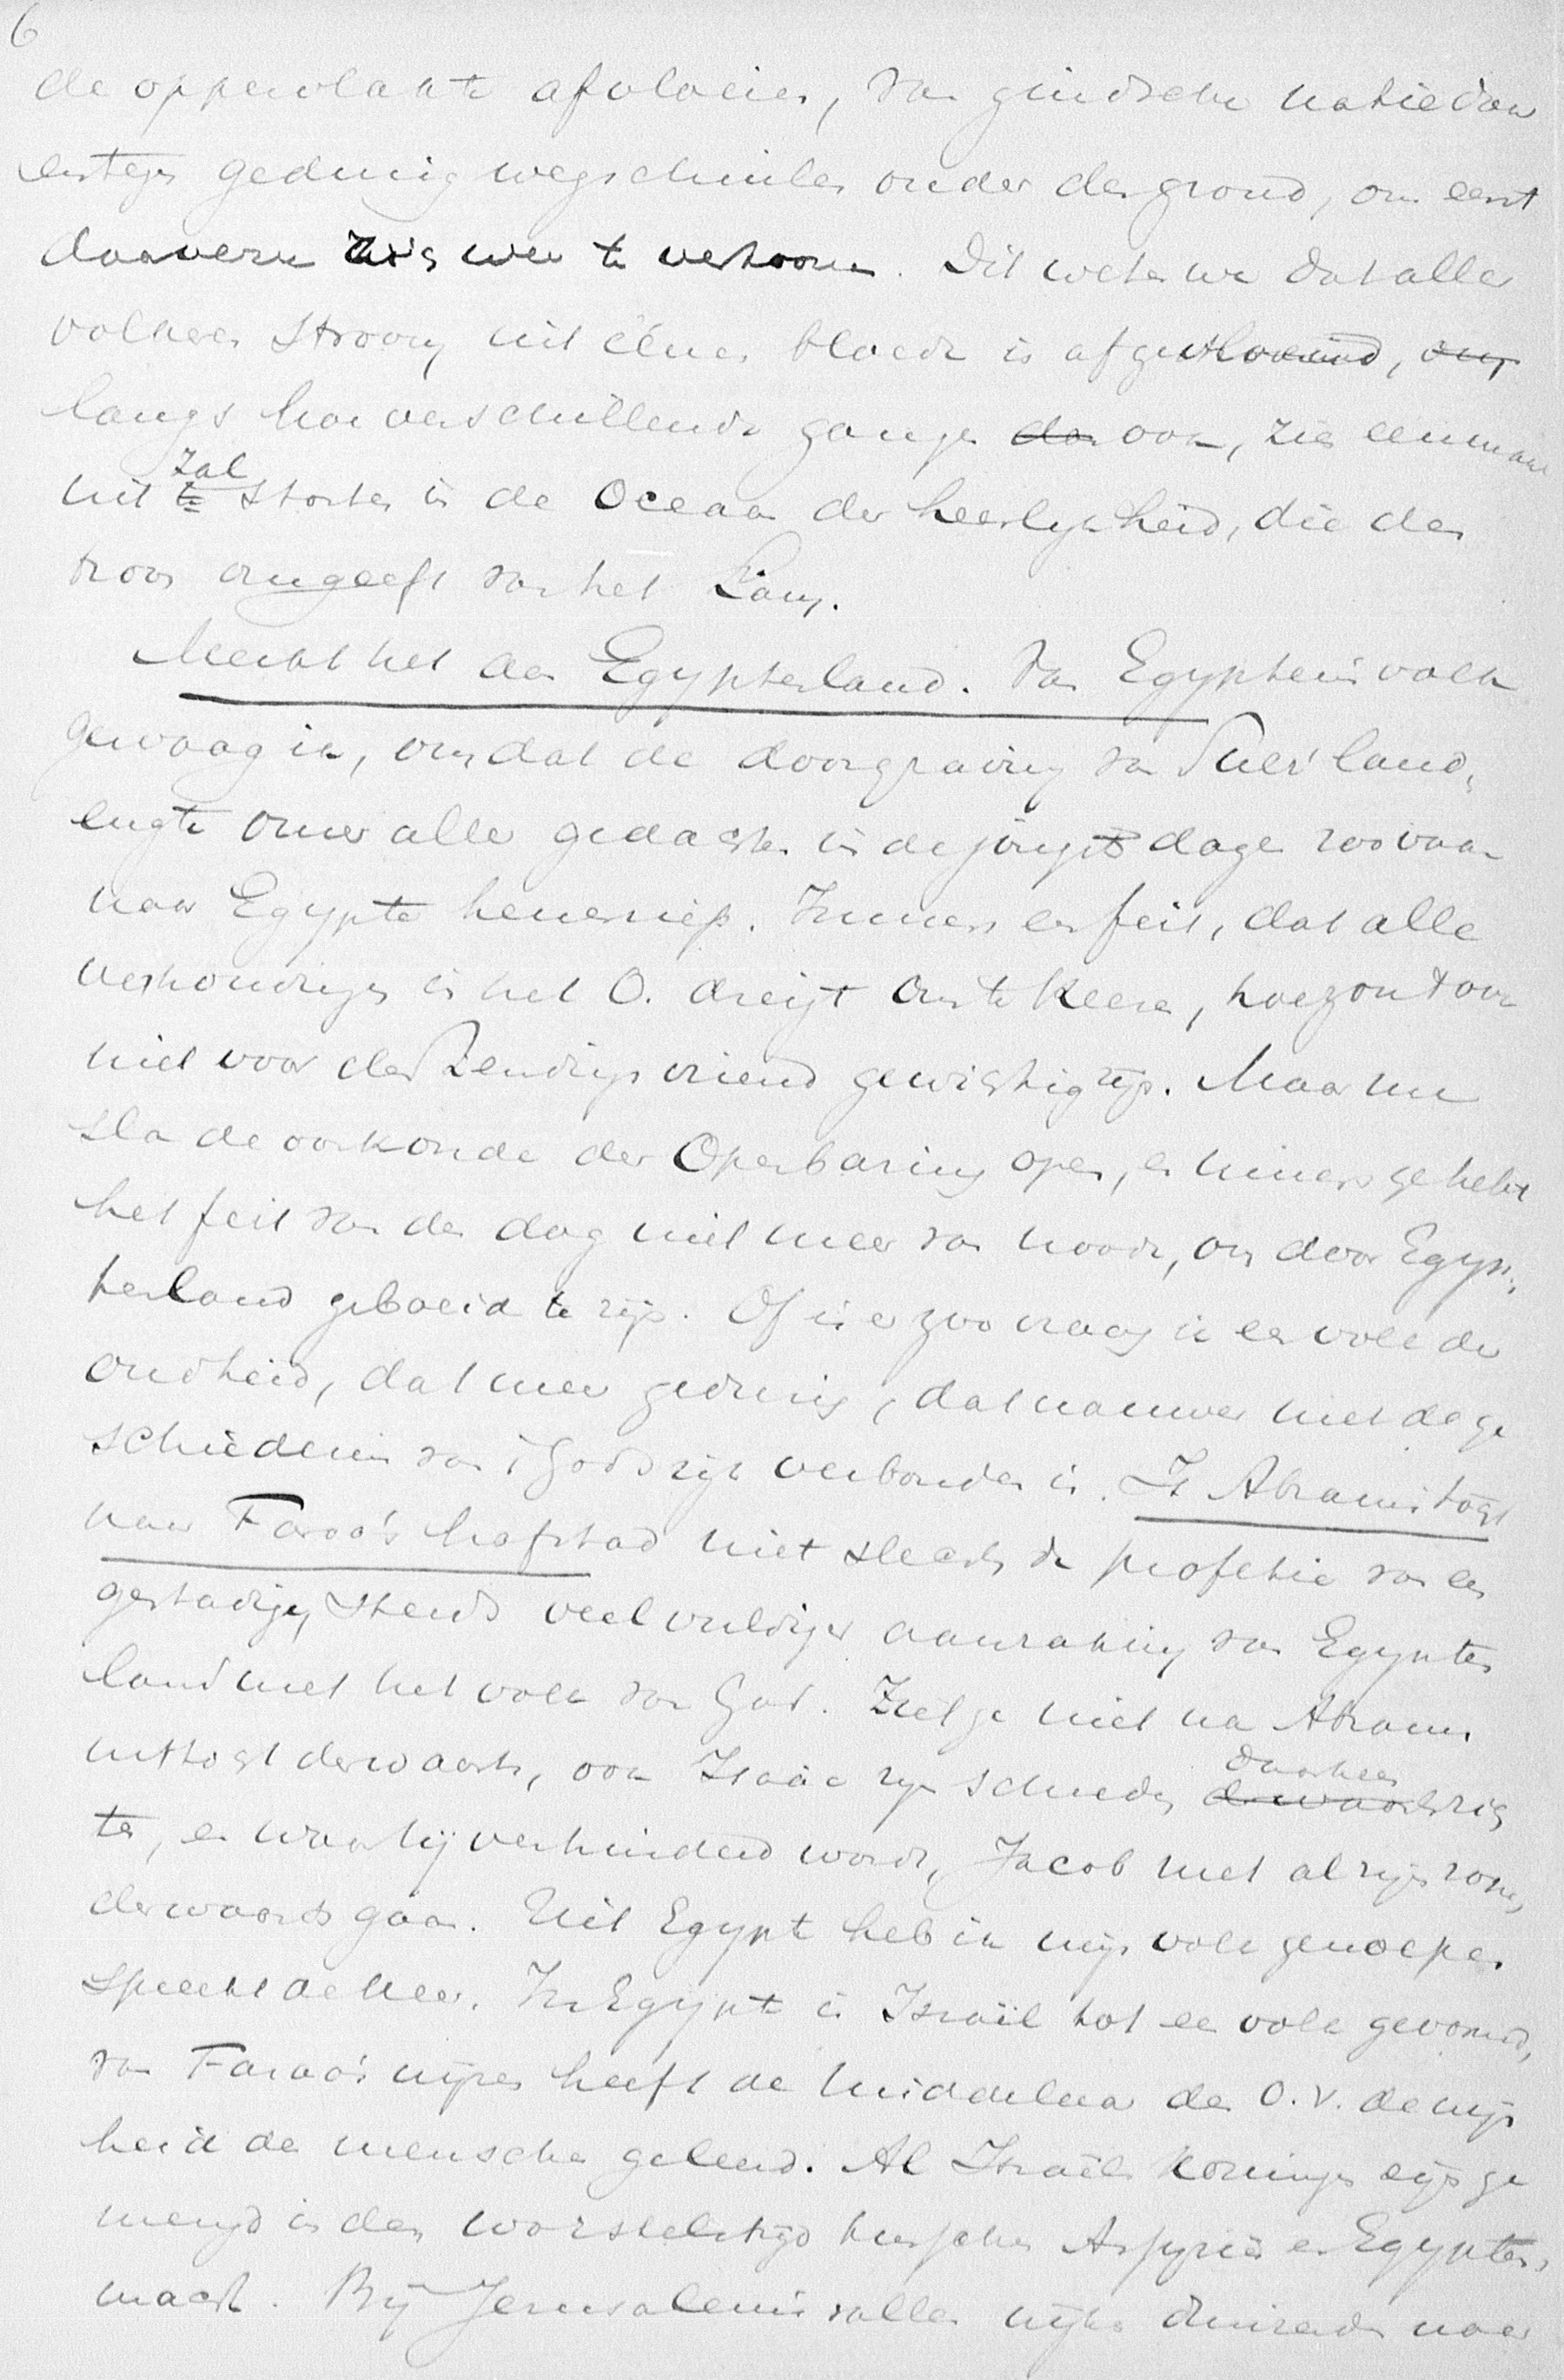 6
de oppervlakte afvloeien, van gindsche natie dan
eerst een gedurig wegschuilen onder den grond, om eerst
daarverre zich weer te vertoonen. Dit weten we dat aller
volkeren stroom uit éénen bloede is afgevloeid, om
langs hoe verschillende gangen dan ook, zich eenmaal
uit te zal storten in de Oceaan der heerlykheid, die den
troon omgeeft van het Lam.
Merkt het aan Egypteland. Van Egypte's volk
gewaag ik, omdat de doorgraving van Suez' land,
engte onzer aller gedachten in de jongste dagen zoo vaak
naar Egypte henenriep. Immers een feit, dat alle
verhoudingen in het O. dreigt om te keeren, hoe zou 't ook
niet voor den Zendingsvriend gewichtig zijn. Maar nu
sla de oorkonde der Openbaring open, en immers ge hebt
het feit van den dag niet meer van noode, om door Egyp,
teland geboeid te zijn. Of is er zoo vraag ik een volk der
oudheid, dat meer gedurig, dat nauwer met de ge
schiedenis van 't Godsrijk verbonden is. Is Abrams togt
naar Farao's hofstad niet slechts de profetie van een
gestadige, steeds veelvuldiger aanraking van Egypte
land met het volk van God. Ziet ge niet na Abrams
uittogt derwaarts, ook Isaäc zijn schreden derwaarts daarheen rig
ten, en waar hij verhinderd wordt, Jacob met al zijn zonen,
derwaarts gaan. Uit Egypte heb ik mijn volk geroepen
spreekt de Heer. In Egypte is Israël tot een volk gevormd,
van Farao's wijzen heeft de Middelaar des O.V. de wijs
heid der menschen geleerd. Al Israëls koningen zijn ge
mengd in den worstelstrijd tusschen Assyrië en Egyptes
macht. Bij Jerusalems val wijken duizenden naar